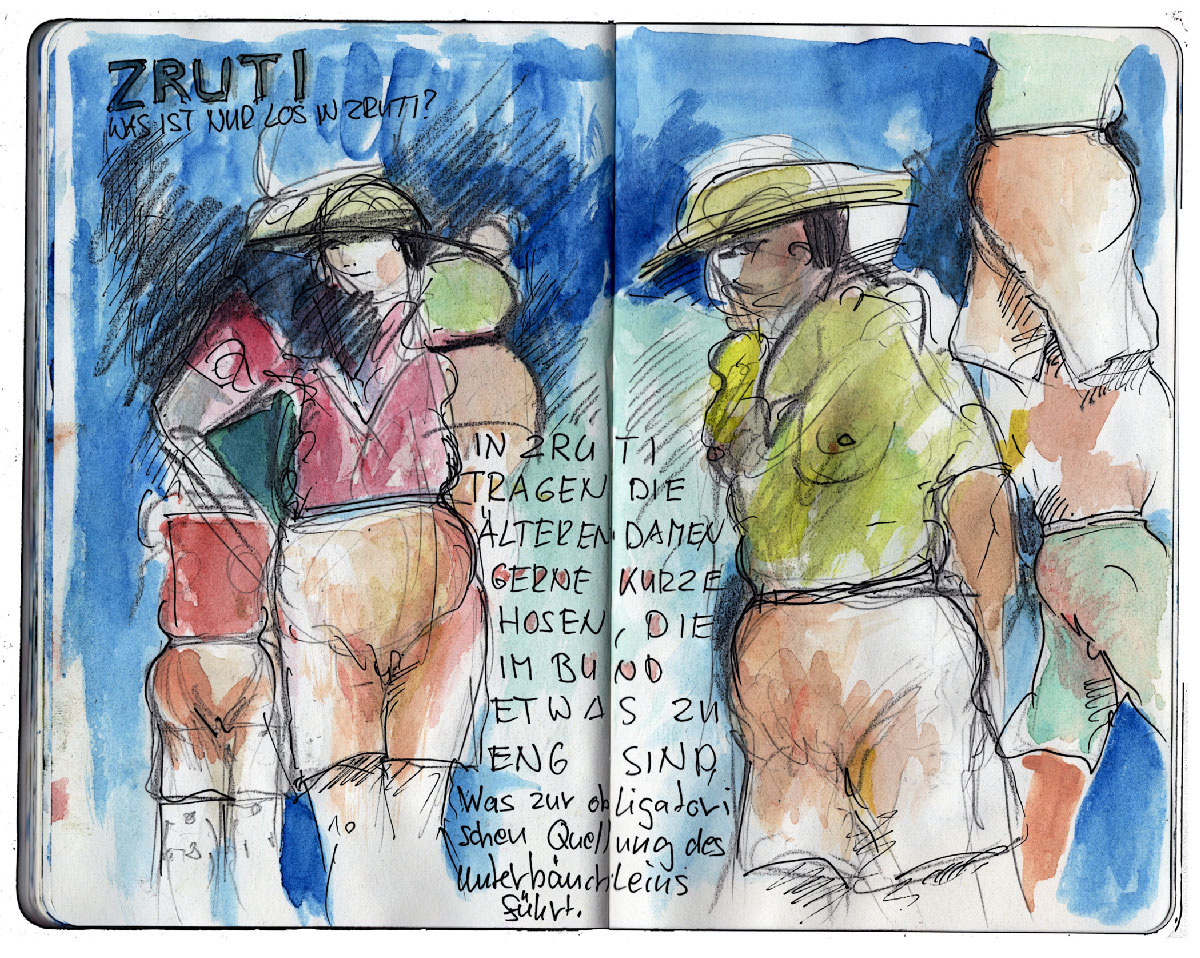 ZRUTI
WAS IST NUR LOS IN ZRUTI?
IN ZRUTI
TRAGEN DIE
ÄLTEREN DAMEN
GERNE KURZE
HOSEN, DIE
IM BUND
ETWAS ZU
ENG SIND,
Was zur obligatori
schen Quellung des
Unterbäuchleins
führt.